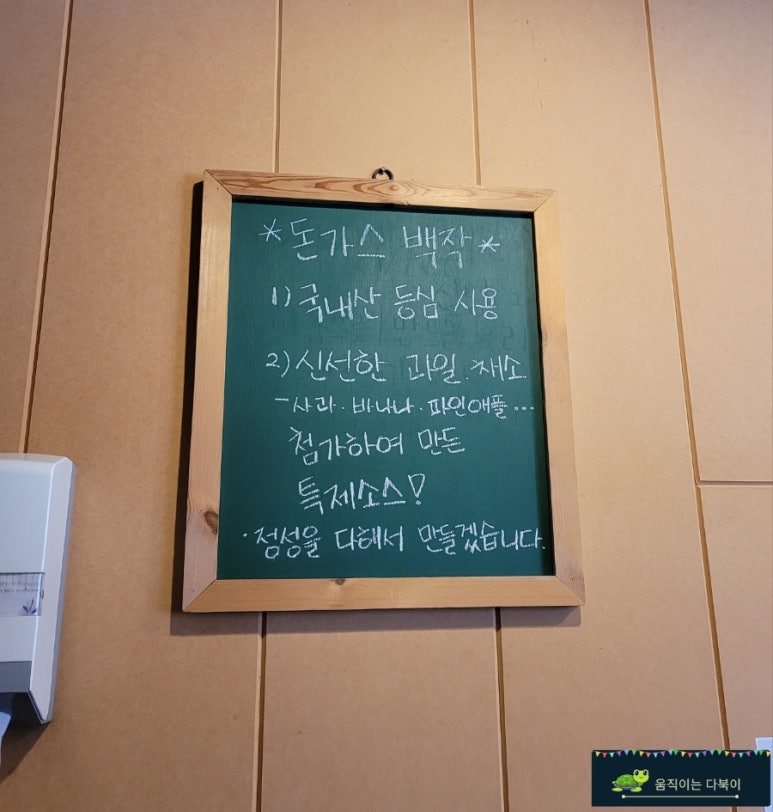 *돈가스 백작*
1) 국내산 등심 사용
2) 신선한 과일. 채소
- 사과 · 바나나 · 파인애플 ...
첨가하여 만든
특제소스!
· 정성을 다해서 만들겠습니다.
움직이는 다북이